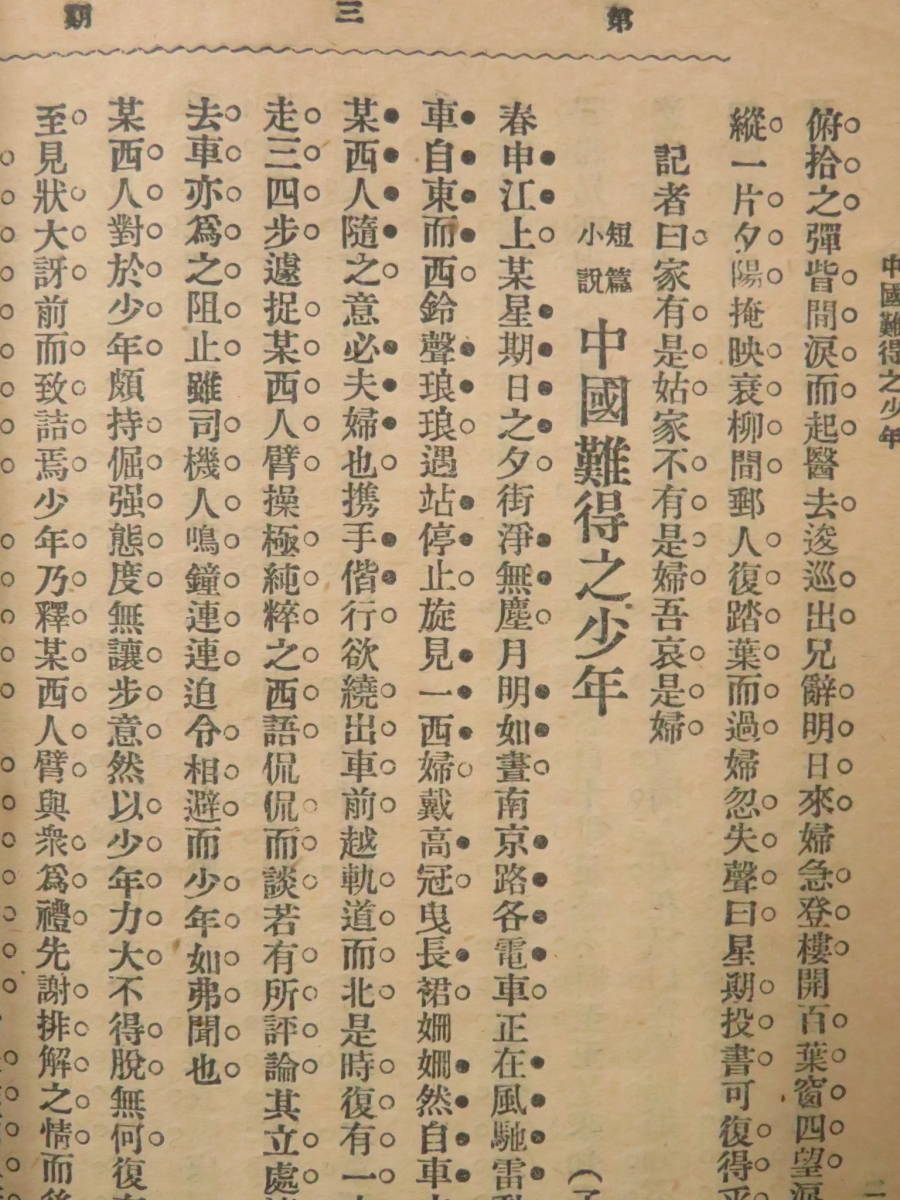 第三期
中國難得之少年
俯拾之彈眥間淚而起醫去逡巡出兄辭明日來婦急登樓開百葉窗四望
縱一片夕陽掩映衰柳間郵人復踏葉而過婦忽失聲曰星期投書可復得
記者曰家有是姑家不有是婦吾哀是婦
短篇小說 中國難得之少年
春申江上某星期日之夕街淨無塵月明如晝南京路各電車正在風馳雷
車自東而西鈴聲琅琅遇站停止旋見一西婦戴高冠曳長裙姍姍然自車
某西人隨之意必夫婦也携手偕行欲繞出車前越軌道而北是時復有一
走三四步遽捉某西人臂操極純粹之西語侃侃而談若有所評論其立處
去車亦爲之阻止雖司機人鳴鐘連連迫令相避而少年如弗聞也
某西人對於少年頗持倔强態度無讓步意然以少年力大不得脫無何復
至見狀大訝前而致詰焉少年乃釋某西人臂與衆爲禮先謝排解之情而
二